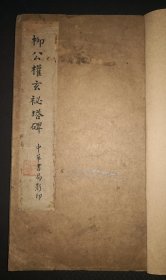 柳公權玄祕塔碑
中華書局影印